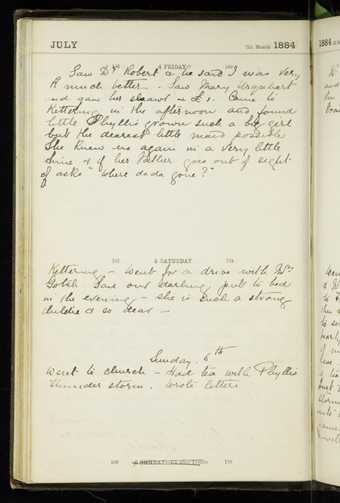 JULY 7th Month 1884
4 FRIDAY
Saw Dr Robert & he said I was very
much better - Saw Mary Urquhart
and gave her shawl & Came to
Kettering in the afternoon and found
little Phyllis grown such a big girl
but the dearest little maid possible
She knew us again in a very little
time & if her Father goes out of sight
& asks "where dada gone?"
5 SATURDAY
Kettering - Went for a drive with Mrs
Gotch Saw our darling put to bed
in the evening - she is such a strong
childie & so dear -
Sunday. 6th
Went to church - Had tea with Phyllis
Thunder storm. Wrote letters